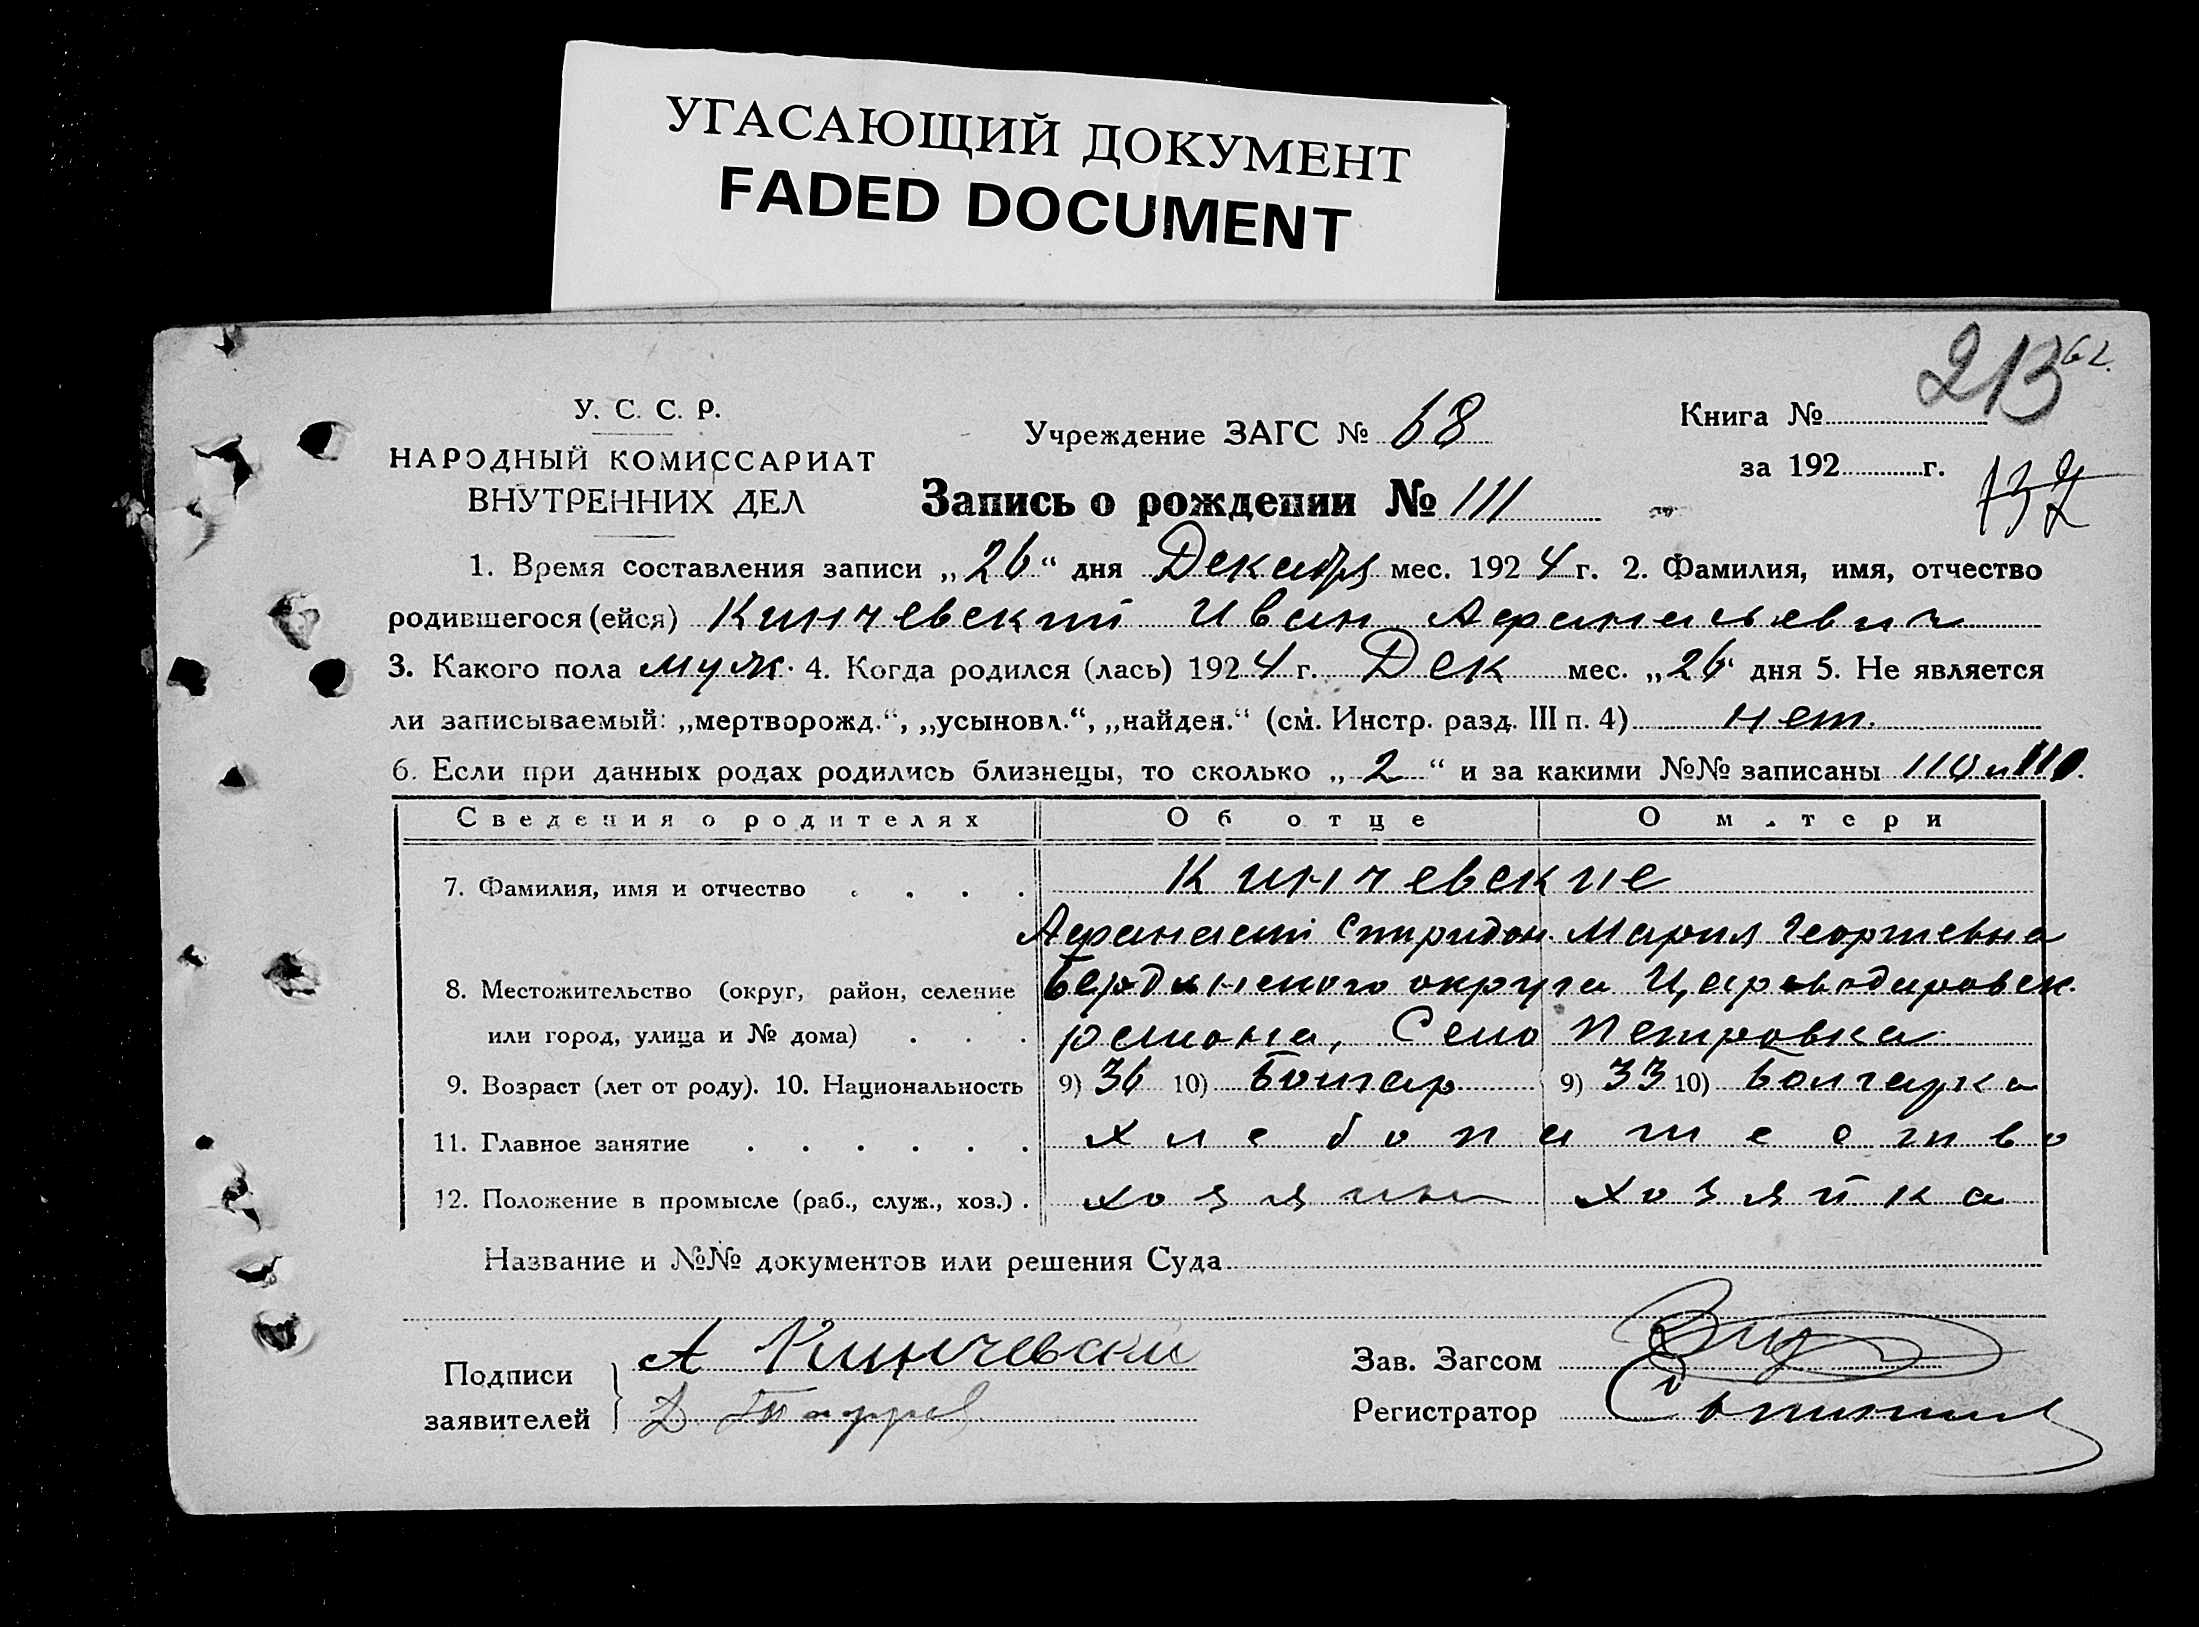 УГАСАЮЩИЙ ДОКУМЕНТ
FADED DOCUMENT
213 62.
У. С. С. Р.
НАРОДНЫЙ КОМИССАРИАТ
ВНУТРЕННИХ ДЕЛ
Учреждение ЗАГС № 68
Книга №
за 192 г.
137
Запись о рождении № 111
1. Время составления записи „26“ дня Декабря мес. 1924 г. 2. Фамилия, имя, отчество
родившегося (ейся) Кинчевский Иван Афанасьевич
3. Какого пола муж. 4. Когда родился (лась) 1924 г. Дек мес. „26“ дня 5. Не является
ли записываемый: „мертворожд.“, „усыновл.“, „найден.“ (см. Инстр. разд. III п. 4) нет.
6. Если при данных родах родились близнецы, то сколько „2“ и за какими №№ записаны 110 и
Сведения о родителях Об отце О матери
7. Фамилия, имя и отчество . . . . Кинчевские
Афанасий Спиридон. Мария Георгиевна
8. Местожительство (округ, район, селение Бердянского округа Цареводаровск.
или город, улица и № дома) . . . района, Село Петровка
9. Возраст (лет от роду). 10. Национальность 9) 36 10) Болгар 9) 33 10) Болгарка
11. Главное занятие . . . . . . хлебопашество
12. Положение в промысле (раб., служ., хоз.) . хозяин хозяйка
Название и №№ документов или решения Суда
Подписи заявителей } А Кинчевски
Зав. Загсом
Регистратор